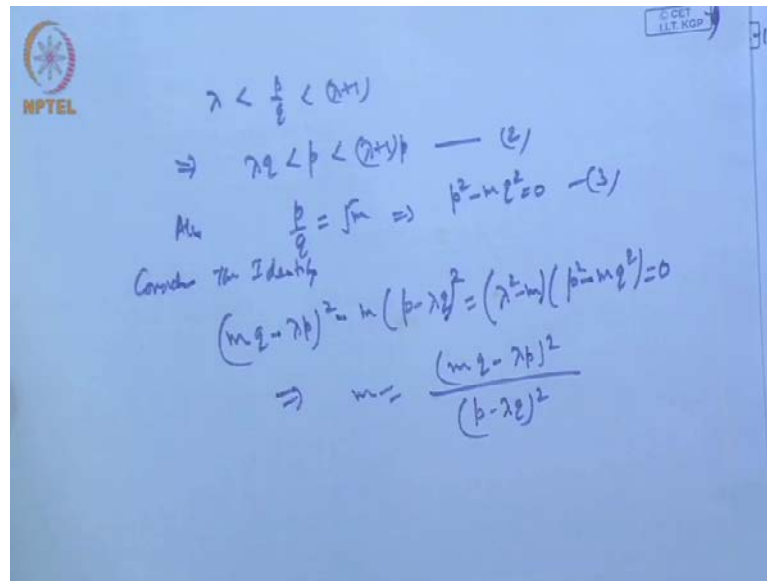 © CET
I.I.T. KGP
NPTEL
λ < p/q < (λ+1)
⇒ λq < p < (λ+1)p — (2)
Also p/q = √m ⇒ p² - mq² = 0 - (3)
Consider the Identity
(mq - λp)² - m(p - λq)² = (λ² - m)(p² - mq²) = 0
⇒ m = (mq - λp)² / (p - λq)²